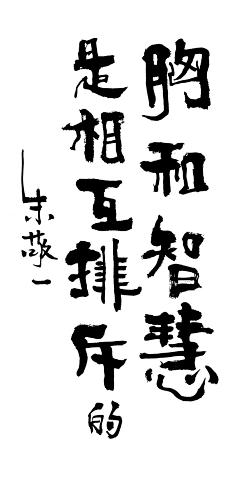 胸和智慧
是相互排斥
的
朱敬一